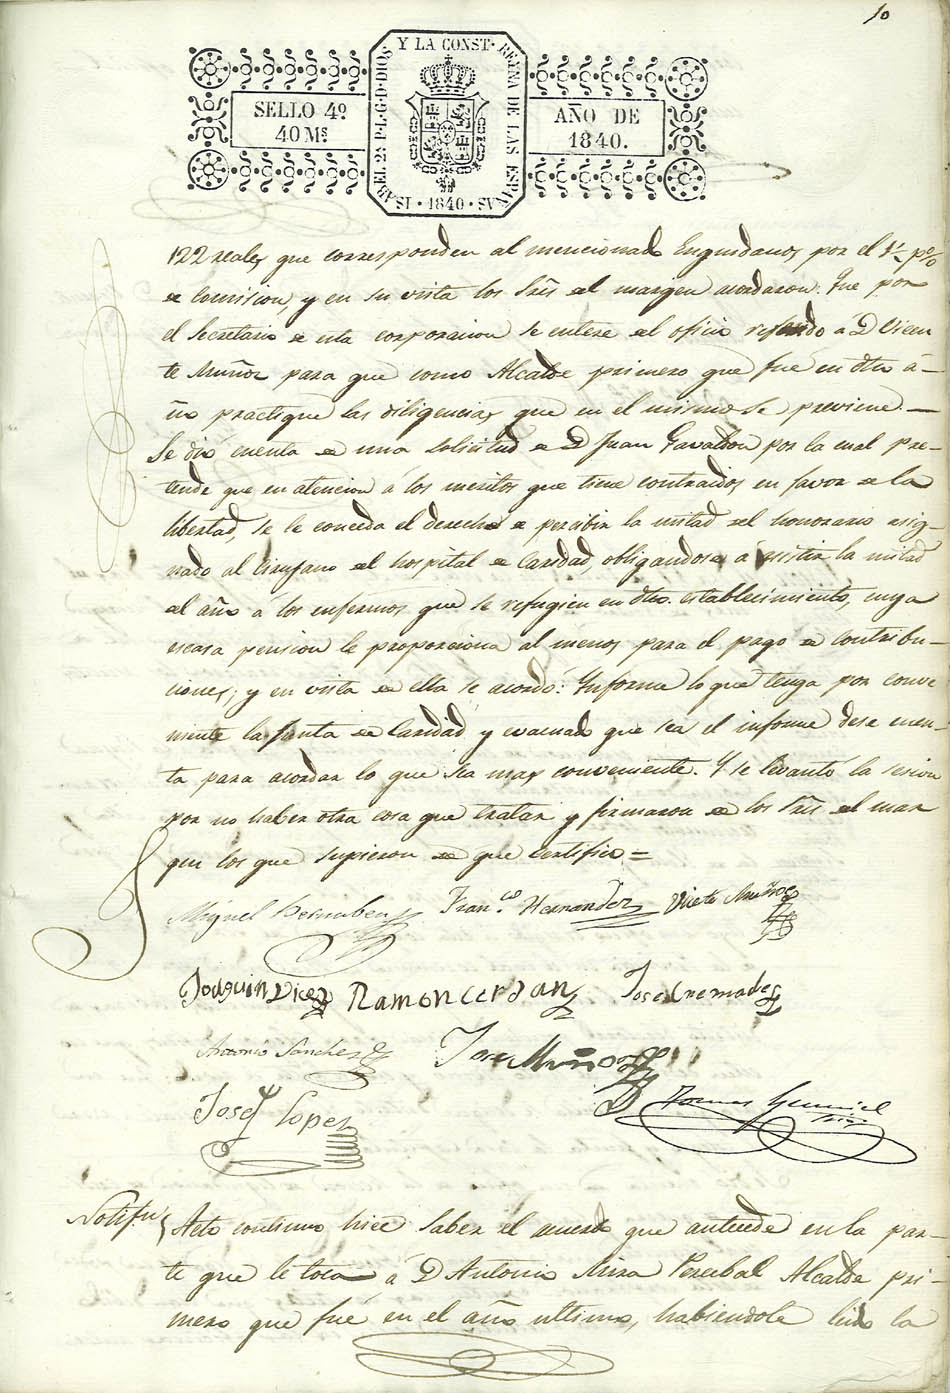 10
ISABEL 2ª P.L.G.D.DIOS Y LA CONST. REYNA DE LAS ESPAÑAS · 1840 ·
SELLO 4º
40 Ms
AÑO DE
1840.
122 reales que corresponden al mencionado Enguidanos por el 1½ p%
de Comision, y en su vista los Sres del margen acordaron: Que por
el Secretario de esta corporacion se entere del oficio referido á D Vicen
te Muñoz para que como Alcalde primero que fué en dho á-
ño practique las diligencias que en el mismo se previene.—
Se dió cuenta de una solicitud de D Juan Gavaldon por la cual pre-
tende que en atencion á los meritos que tiene contraidos en favor de la
libertad, se le conceda el derecho de percibir la mitad del honorario asig-
nado al Cirujano del hospital de Caridad, obligandose á asistir la mitad
del año á los enfermos que se refugien en dho. establecimiento, cuya
escasa pension le proporciona al menos para el pago de contribu-
ciones; y en vista de ella se acordó: Informe lo que tenga por conve
niente la Junta de Caridad y evacuado que sea el informe dese cuen-
ta para acordar lo que sea mas conveniente. Y se levantó la sesion
por no haber otra cosa que tratar y firmaron de los Sres del mar
gen los que supieron de que certifico =
Miguel Bernabeu Fran.co Hernandez Victe Muñoz
Joaquin Dicez Ramon Cerdan Jose Cremades
Antonio Sanchez Jose Muñoz
Josef Lopez Tomas
Notifn Acto continuo hice saber el acuerdo que antecede en la par-
te que le toca á D Antonio Mira Percebal Alcalde pri-
mero que fué en el año ultimo, habiendole leido la